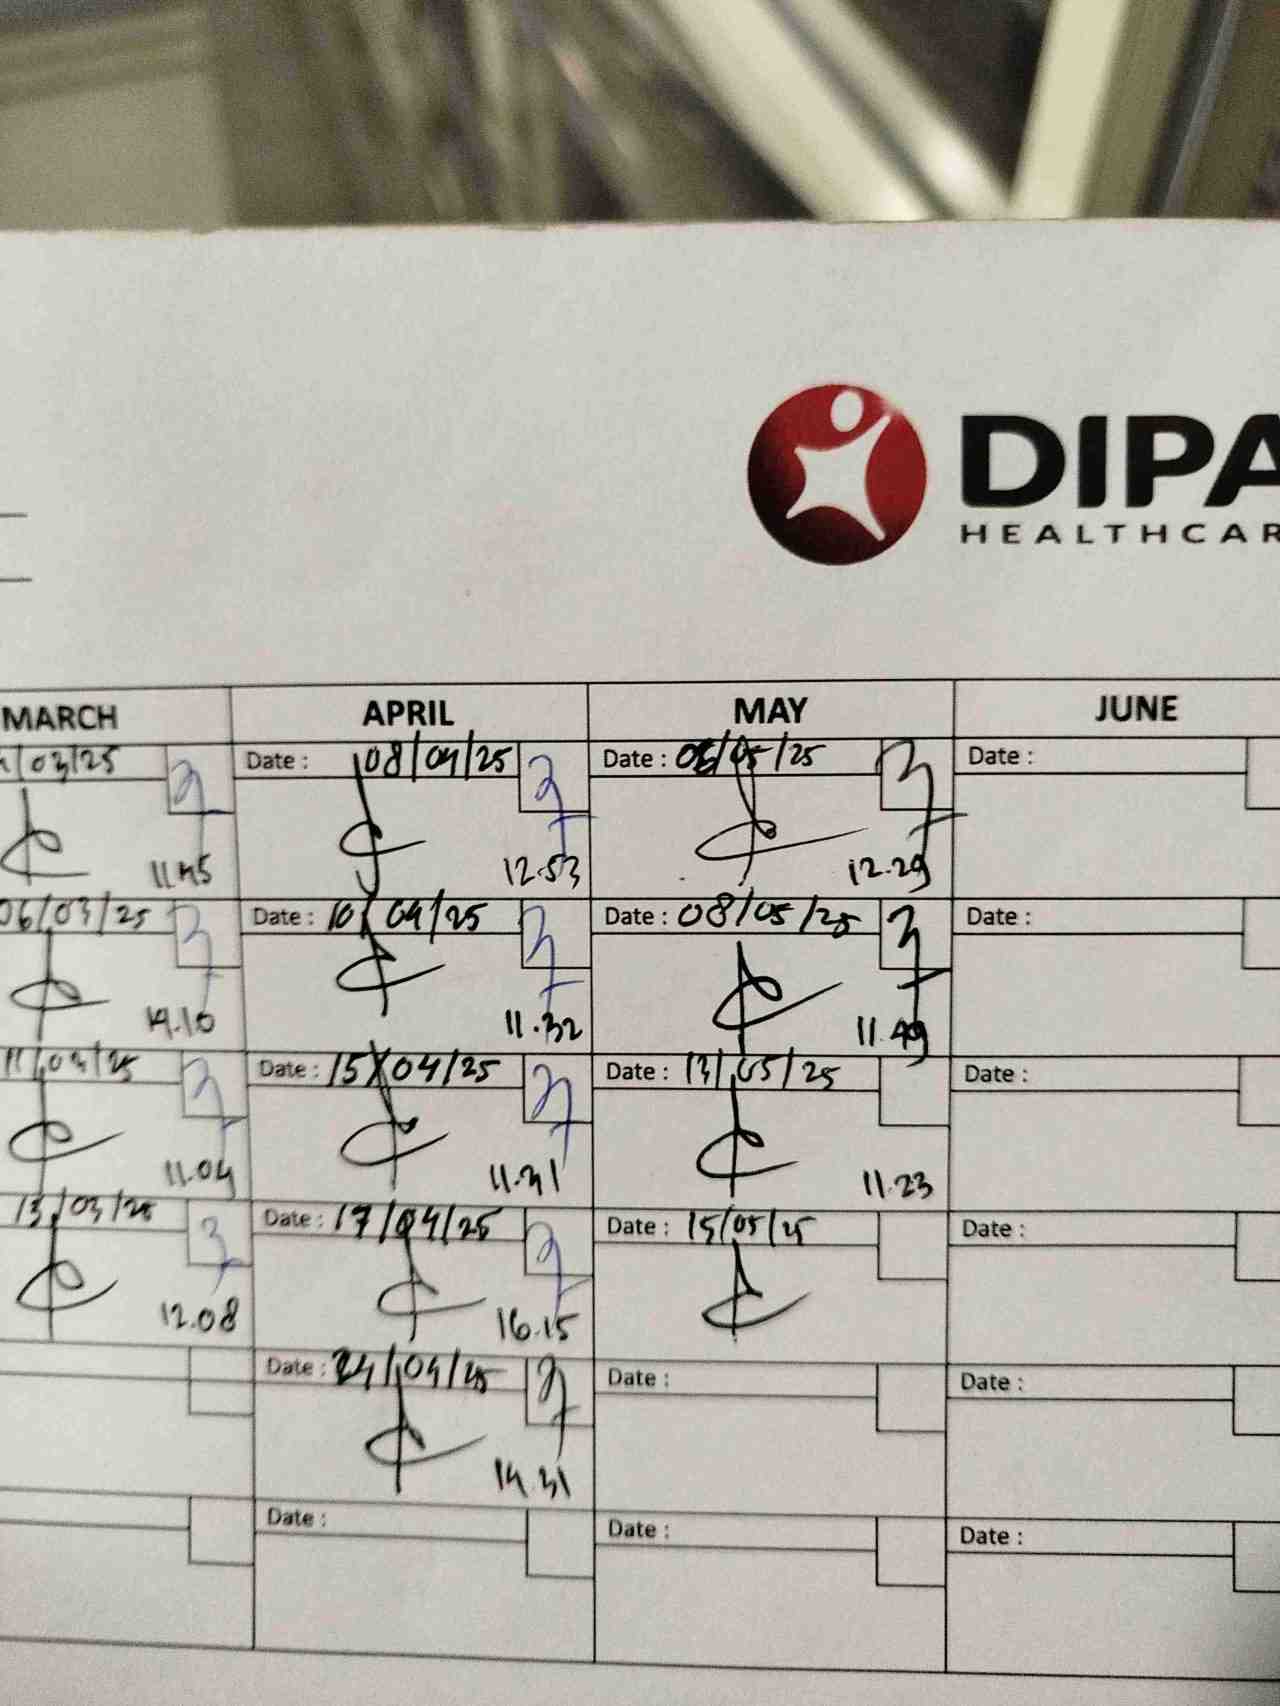 DIPA
HEALTHCAR
MARCH APRIL MAY JUNE
/03/25 Date : 08/04/25 Date : 06/05/25 Date :
11.45 12.53 12.29
06/03/25 Date : 10/04/25 Date : 08/05/25 Date :
14.10 11.32 11.49
11/03/25 Date : 15/04/25 Date : 13/05/25 Date :
11.04 11.31 11.23
13/03/25 Date : 17/04/25 Date : 15/05/25 Date :
12.08 16.15
Date : 24/04/25 Date : Date :
14.31
Date : Date : Date :